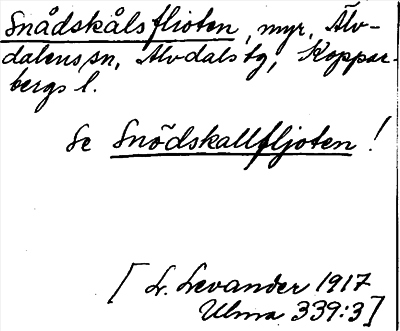 Snådskålsflioten, myr, Älv-
dalens sn, Älvdals tg, Koppar-
bergs l.
Se Snödskallfljoten!
[L. Levander 1917
Ulma 339:3]